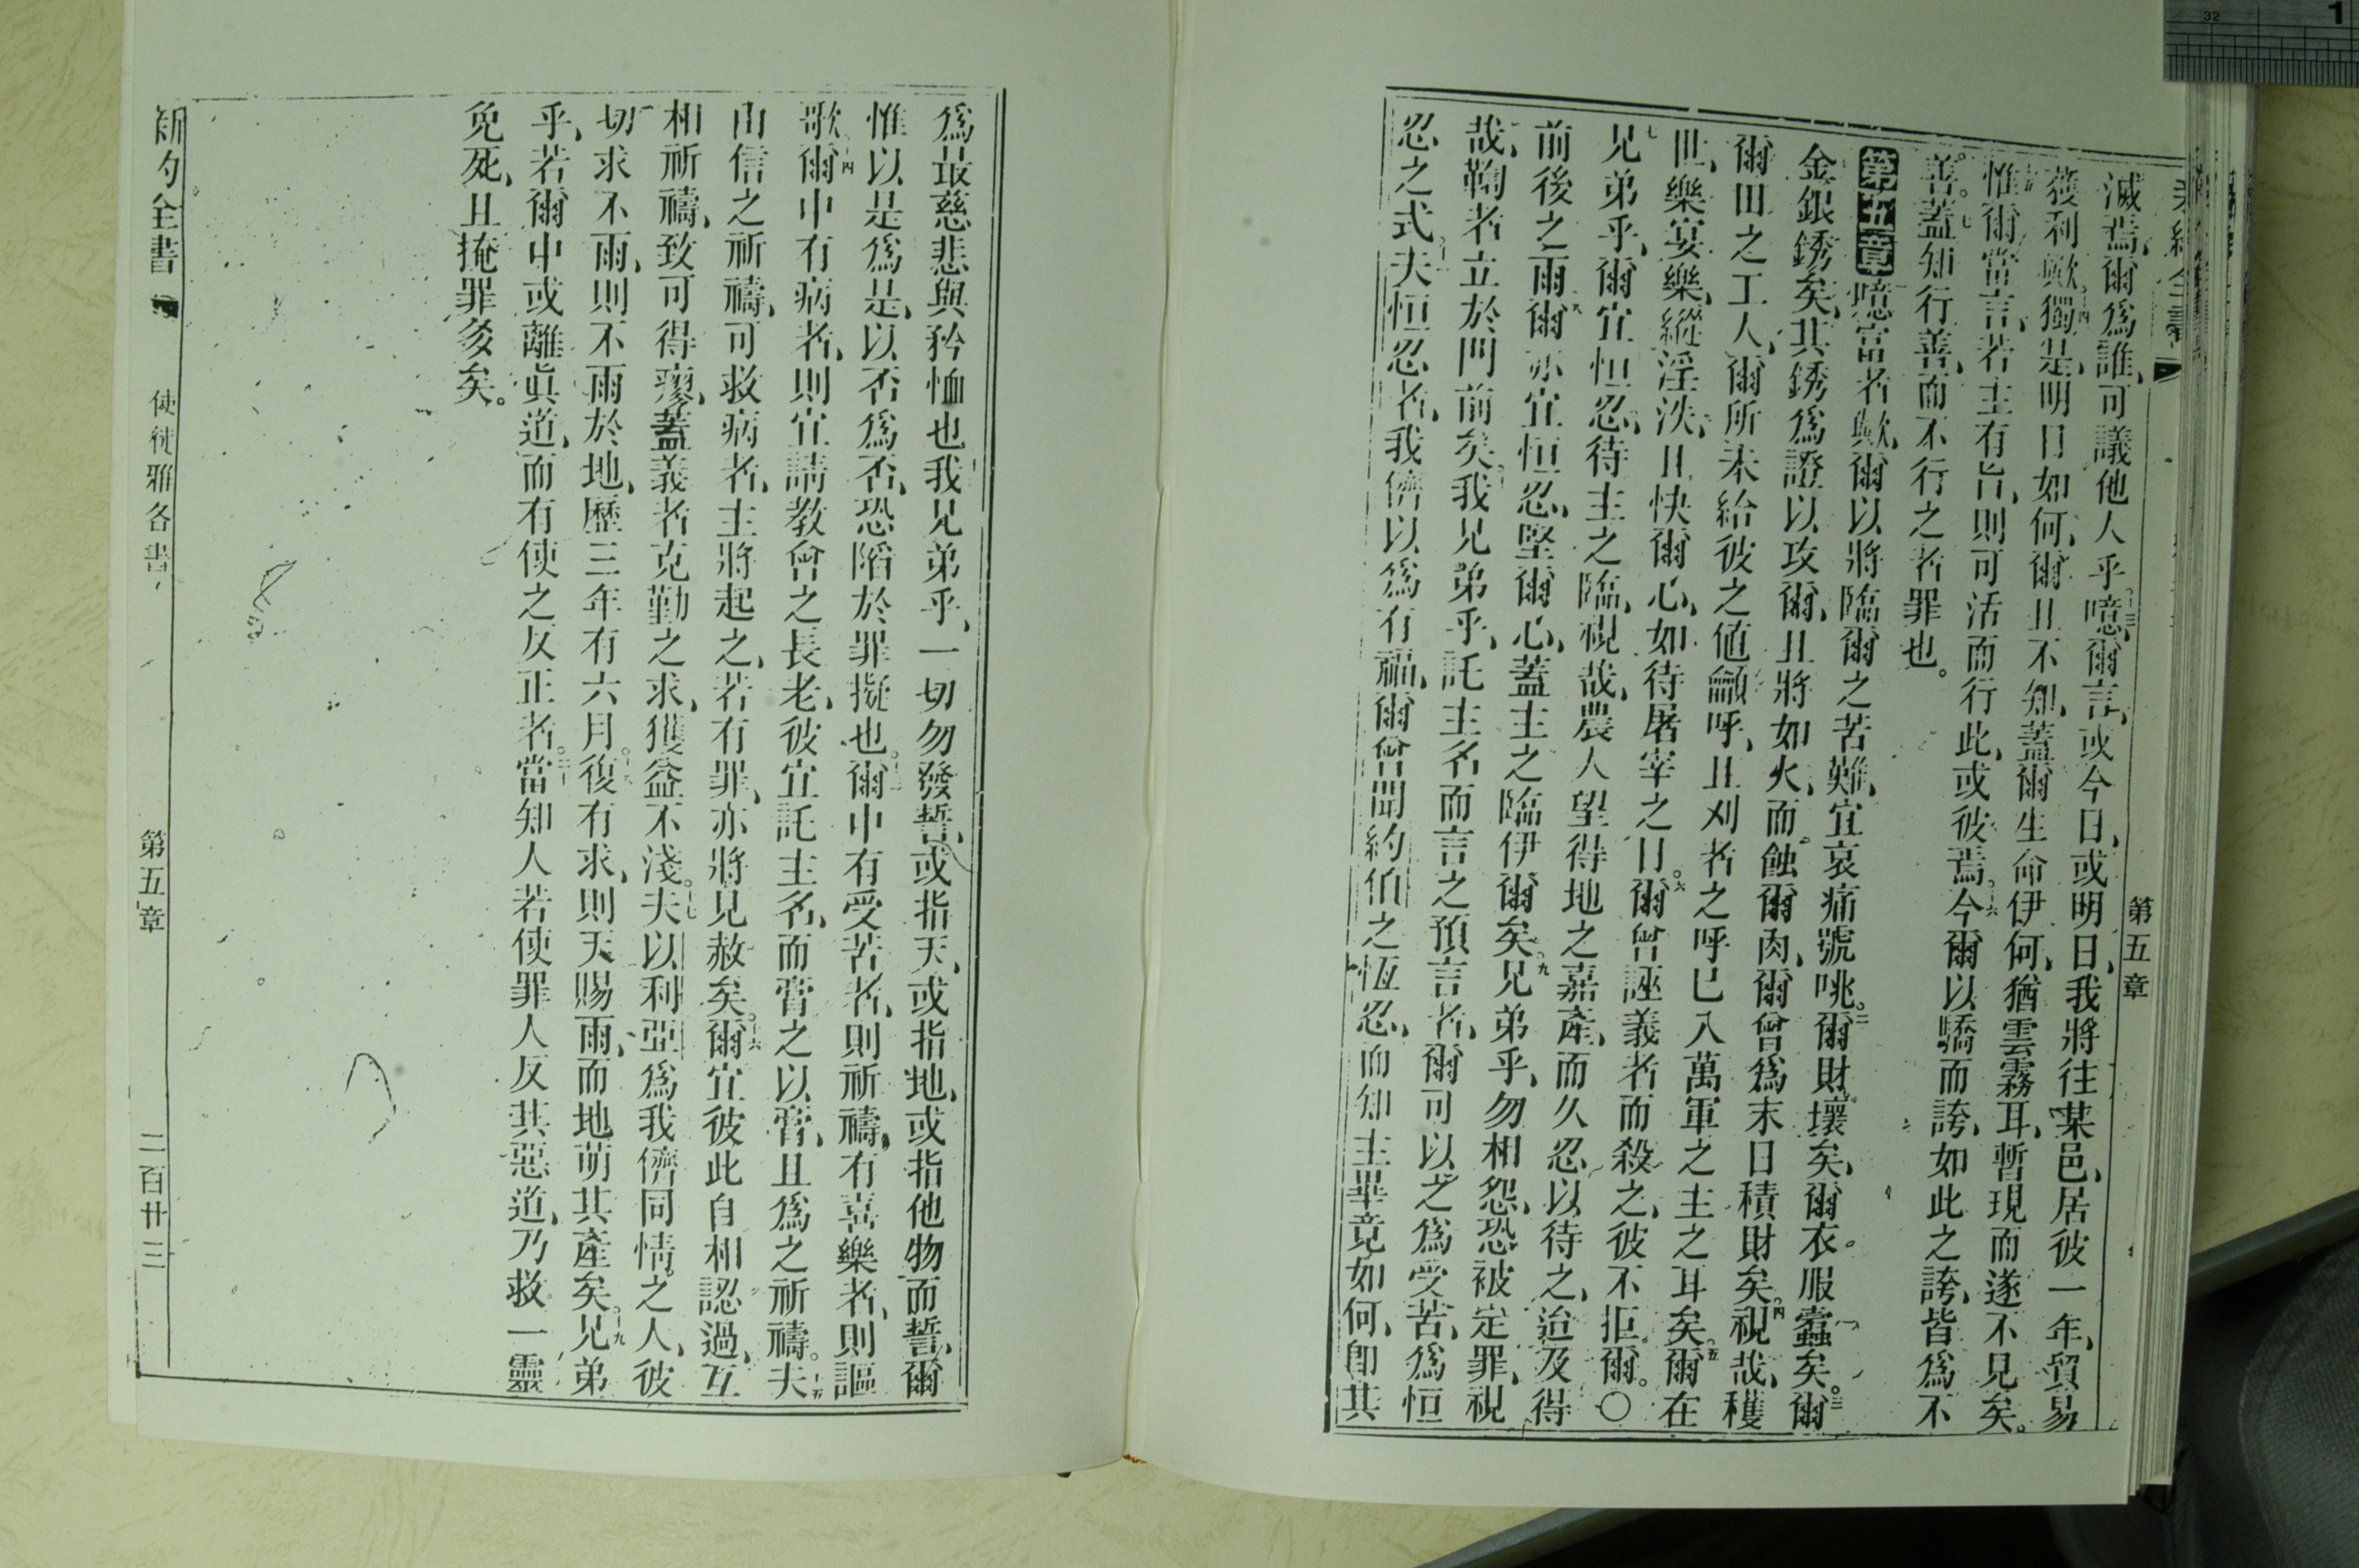 全書
第五章
滅焉、爾爲誰、可議他人乎。十三噫、爾言、或今日、或明日、我將往某邑、居彼一年、貿易
獲利歟、十四獨是、明日如何、爾且不知、蓋爾生命伊何、猶雲霧耳、暫現而遂不見矣。
惟爾當言、若主有旨、則可活而行此、或彼焉。十六今爾以驕而誇、如此之誇、皆爲不
善。蓋知行善、而不行之者罪也。
第五章噫富者歟、爾以將臨爾之苦難、宜哀痛號咷。二爾財壞矣、爾衣服蠹矣。三爾
金銀銹矣、其銹爲證以攻爾、且將如火而蝕爾肉、爾曾爲末日積財矣。四視哉、穫
爾田之工人、爾所未給彼之値籲呼、且刈者之呼已入萬軍之主之耳矣。五爾在
世、樂宴樂、縱淫泆、且快爾心、如待屠宰之日。六爾曾誣義者而殺之、彼不拒爾。〇
七兄弟乎、爾宜恒忍、待主之臨、視哉、農人望得地之嘉產、而久忍以待之、迨及得
前後之雨、八爾亦宜恒忍、堅爾心、蓋主之臨伊爾矣。九兄弟乎、勿相怨、恐被定罪、視
哉、鞫者立於門前矣。十我兄弟乎、託主名而言之預言者、爾可以之爲受苦、爲恒
忍之式、十一夫恒忍者、我儕以爲有福、爾曾聞約伯之恆忍、而知主畢竟如何、卽其
爲最慈悲與矜恤也。十二我兄弟乎、一切勿發誓、或指天、或指地、或指他物而誓、爾
惟以是爲是、以否爲否、恐陷於罪擬也。十三爾中有受苦者、則祈禱、有喜樂者、則謳
歌、十四爾中有病者、則宜請教會之長老、彼宜託主名、而膏之以膏、且爲之祈禱。十五夫
由信之祈禱、可救病者、主將起之、若有罪、亦將見赦矣。十六爾宜彼此自相認過、互
相祈禱、致可得瘳、蓋義者克勤之求、獲益不淺。十七夫以利亞爲我儕同情之人、彼
切求不雨、則不雨於地、歷三年有六月。十八復有求、則天賜雨、而地萌其產矣。十九兄弟
乎、若爾中或離眞道、而有使之反正者。二十當知人若使罪人反其惡道、乃救一靈
免死、且掩罪多矣。
新約全書 使徒雅各書 第五章 二百廿三